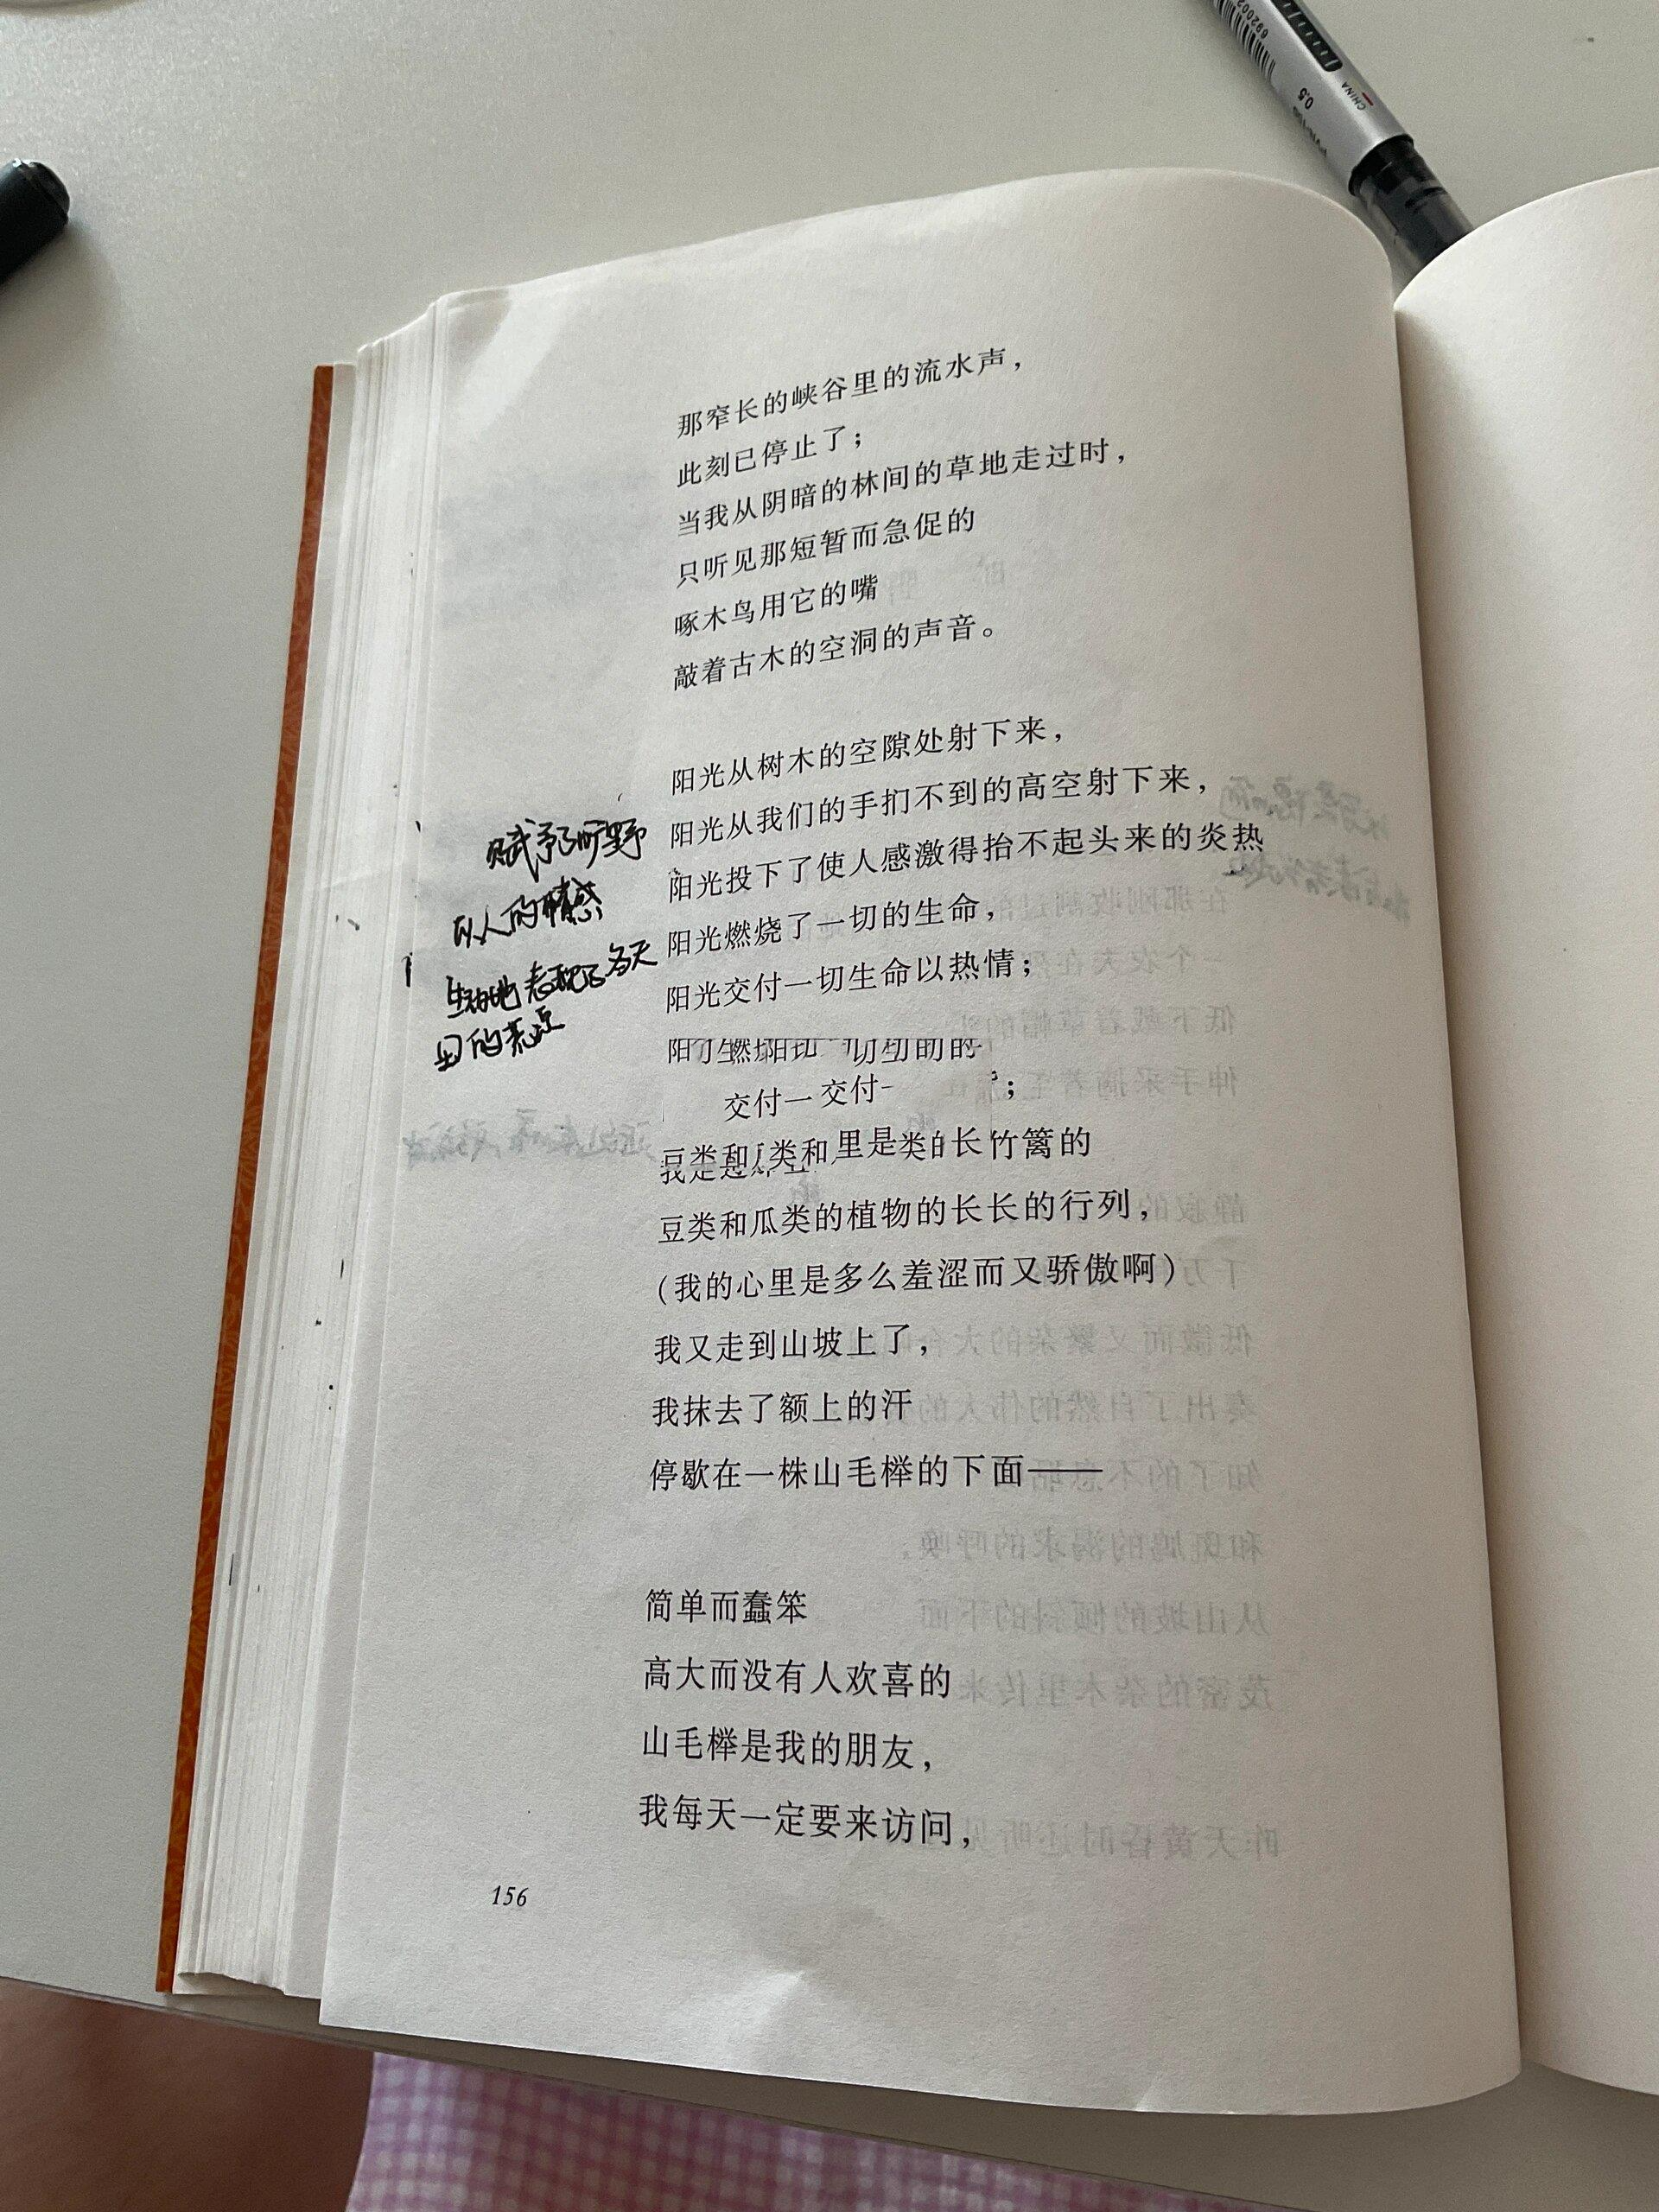 那窄长的峡谷里的流水声，
此刻已停止了；
当我从阴暗的林间的草地走过时，
只听见那短暂而急促的
啄木鸟用它的嘴
敲着古木的空洞的声音。
阳光从树木的空隙处射下来，
阳光从我们的手扪不到的高空射下来，
阳光投下了使人感激得抬不起头来的炎热
阳光燃烧了一切的生命，
阳光交付一切生命以热情；
交付一交付一
豆类和瓜类的植物的长长的行列，
（我的心里是多么羞涩而又骄傲啊）
我又走到山坡上了，
我抹去了额上的汗
停歇在一株山毛榉的下面——
简单而蠢笨
高大而没有人欢喜的
山毛榉是我的朋友，
我每天一定要来访问，
156
赋予了旷野
以人的情感
生动地表现了
的
CHINA
0.5